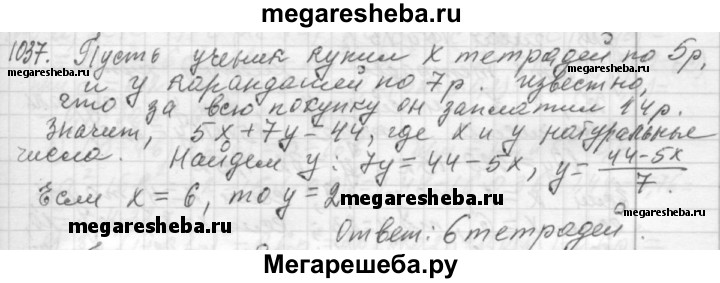 megaresheba.ru
1037. Пусть ученик купил x тетрадей по 5р,
и y карандашей по 7р. известно,
что за всю покупку он заплатил 44р.
Значит, 5x+7y=44, где x и y натуральные
числа. Найдем y: 7y=44-5x, y=(44-5x)/7.
Если x=6, то y=2
Ответ: 6 тетрадей.
megaresheba.ru
megaresheba.ru
megaresheba.ru
megaresheba.ru
Мегарешеба.ру